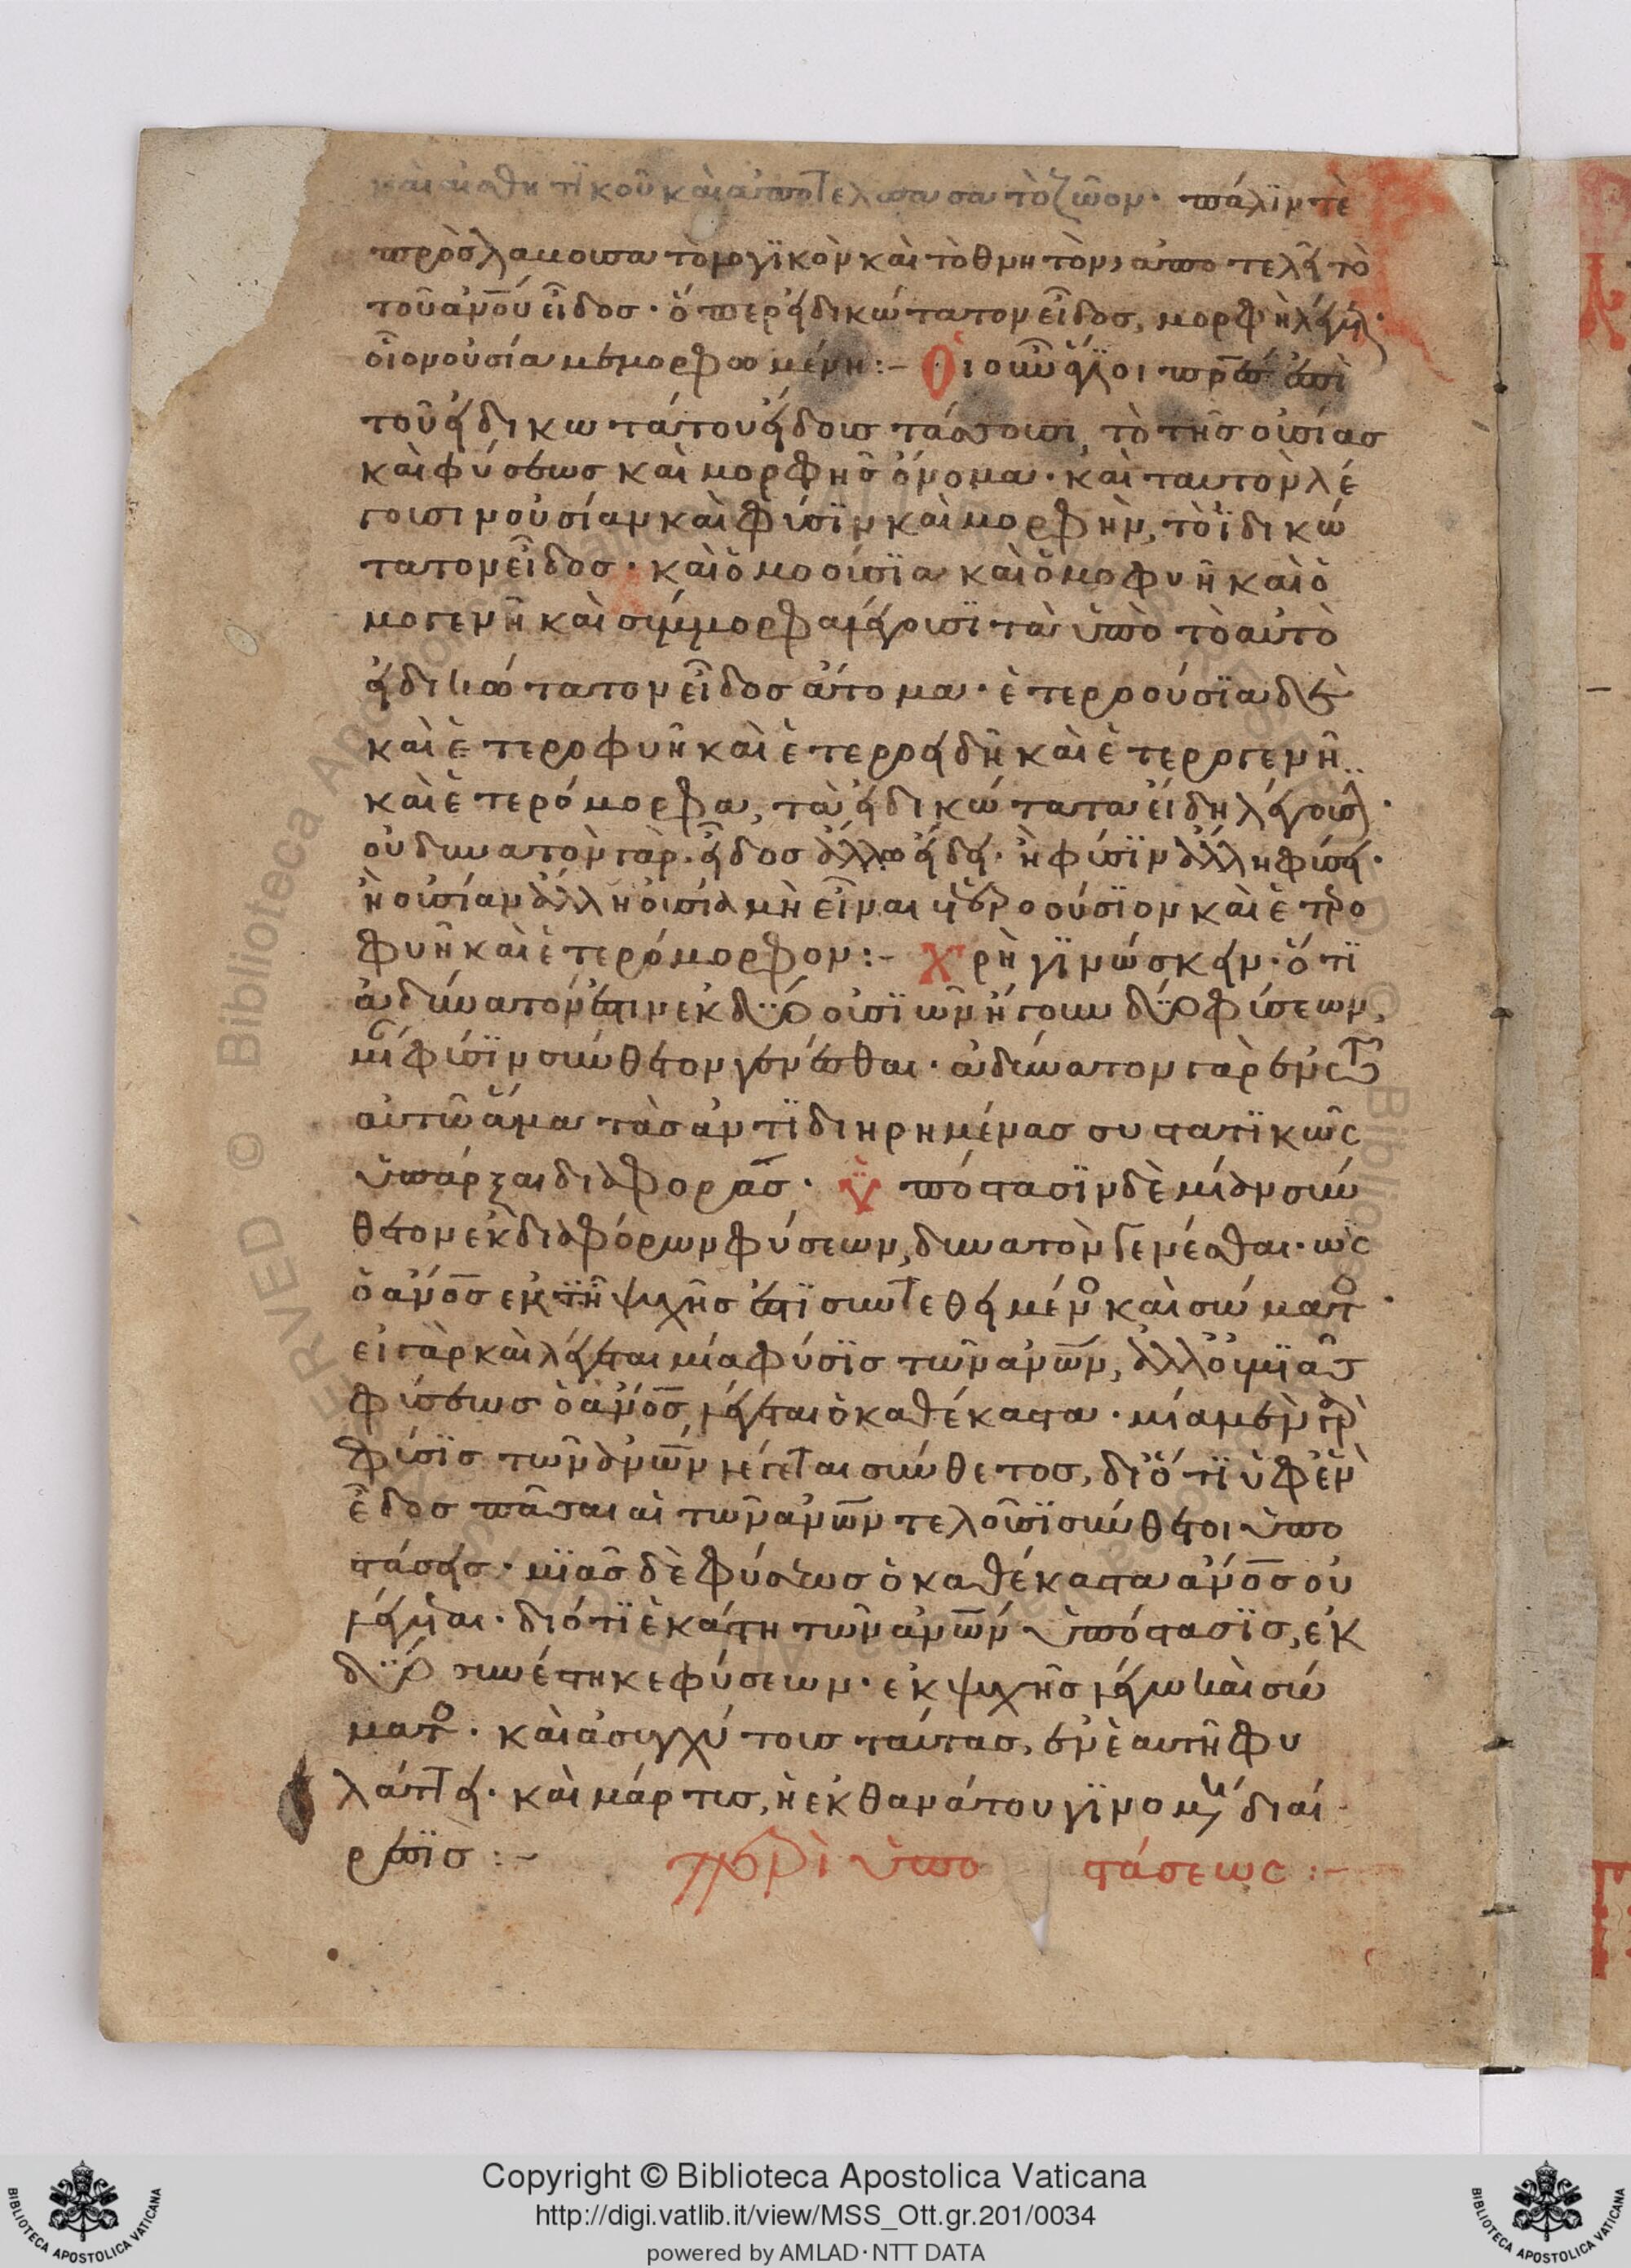 καὶ αἰσθητικοῦ καὶ ἀποτελέσασα τὸ ζῶον· πάλϊν τὲ
προσλαμουσα τὸ λογϊκὸν καὶ τὸ θνητὸν, ἀποτελεῖ τὸ
τοῦ ἀνου εἶδοσ· ὅπερ εἰδικώτατον εἶδοσ, μορφὴ λέγεται·
οἷον οὐσία μεμορφωμένη :- Οἱ οὖν ἅγϊοι πρσ ἐπὶ
τοῦ εἰδικωτάτου εἴδουσ τάσσουσι, τὸ τῆσ οὐσίασ
καὶ φύσεωσ καὶ μορφῆσ ὄνομα· καὶ ταυτὸν λέ
γουσιν οὐσίαν καὶ φύσϊν καὶ μορφὴν, τὸ ϊδικώ
τατον εἶδοσ· καὶ ὁμοούσϊα καὶ ὁμοφυῆ καὶ ὁ
μογενῆ καὶ σύμμορφα λέγουσϊ τὰ ὑπὸ τὸ αὐτὸ
εἰδικώτατον εἶδοσ ἄτομα· ἑτεροούσϊα δὲ
καὶ ἑτεροφυῆ καὶ ἑτεροειδῆ καὶ ἑτερογενῆ
καὶ ἑτερόμορφα, τὰ εἰδικώτατα εἴδη λέγουσϊ·
οὐ δυνατὸν γὰρ· εἶδοσ ἄλλω εἴδει· ἢ φύσϊν ἄλλη φύσει·
ἢ οὐσίαν ἄλλη οὐσία μὴ εἶναι ἑτεροούσϊον καὶ ἑτερο
φυῆ καὶ ἑτερόμορφον :- Χρὴ γϊνώσκειν· ὅτϊ
ἀδύνατόν ἐστιν ἐκ δύο οὐσϊῶν ἤγουν δύο φύσεων,
μί φύσϊν σύνθετον γενέσθαι· ἀδύνατον γὰρ ἐν τῶ
αὐτῶ ἅμα τὰσ ἀντϊδιηρημένασ συστατϊκὼς
ὑπάρξαι διαφορὰσ· Ὑπόστασϊν δὲ μίαν σύν
θετον ἐκ διαφόρων φύσεων, δυνατὸν γενέσθαι· ὡς
ὁ ἀνοσ ἐκ τῆ ψυχῆσ ἐστϊ συντεθειμένος καὶ σώματος·
εἰ γὰρ καὶ λέγεται μία φύσϊσ τῶν ἀνων, ἀλλ' οὐ μϊᾶσ
φύσεωσ ὁ ἀνοσ λέγεται ὁ καθέκαστα· μία μὲν γὰρ
φύσϊσ τῶν ἀνων λέγεται σύνθετοσ, διότϊ ὑφ' ἓν
εἶδοσ πᾶσαι αἱ τῶν ἀνων τελοῦσϊ σύνθετοι ὑπο
στάσεισ· μϊᾶσ δὲ φύσεωσ ὁ καθέκαστα ἀνοσ οὐ
λέγεται· διότϊ ἑκάστη τῶν ἀνων ὑπόστασϊσ, ἐκ
δύο συνέστηκε φύσεων· ἐκ ψυχῆσ λέγω καὶ σώ
ματος· καὶ ἀσυγχύτουσ ταύτασ, ἐν ἑαυτῆ φυ
λάττει· καὶ μάρτυσ, ἡ ἐκ θανάτου γϊνομένη διαί
ρεσϊσ :-
Περὶ ὑποστάσεως :-
Copyright © Biblioteca Apostolica Vaticana
http://digi.vatlib.it/view/MSS_Ott.gr.201/0034
powered by AMLAD·NTT DATA